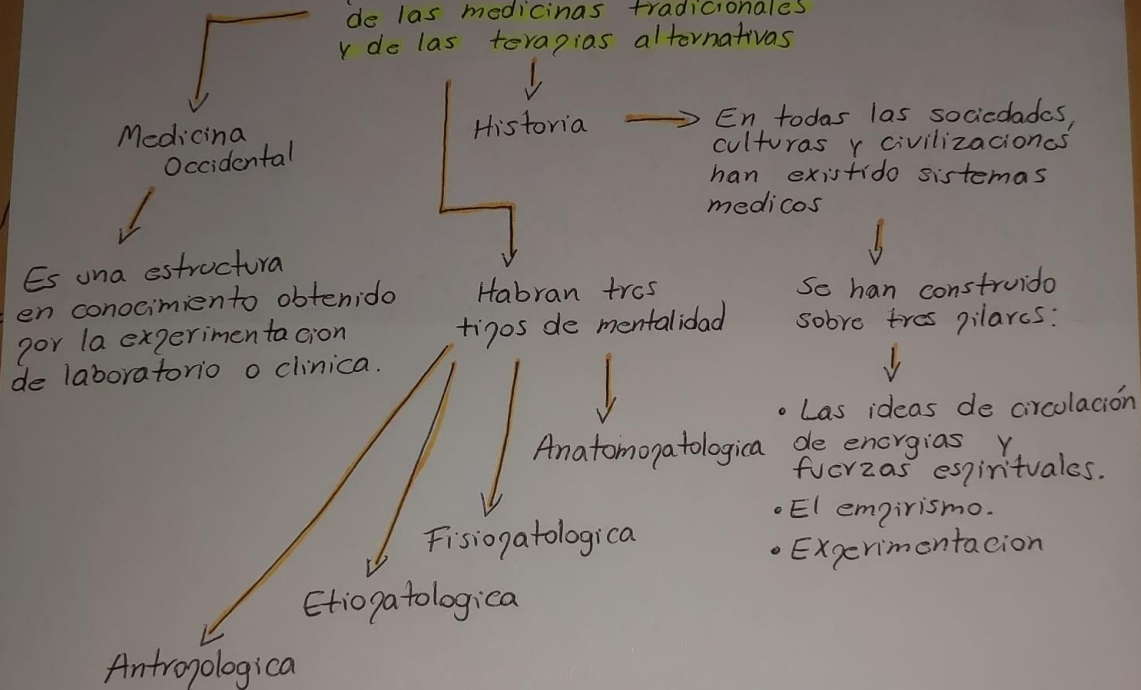 de las medicinas tradicionales
y de las terapias alternativas
Medicina
Occidental
Es una estructura
en conocimiento obtenido
por la experimentacion
de laboratorio o clinica.
Historia
En todas las sociedades,
culturas y civilizaciones
han existido sistemas
medicos
Se han construido
sobre tres pilares:
• Las ideas de circulación
de energias y
fuerzas espirituales.
• El empirismo.
• Experimentacion
Habran tres
tipos de mentalidad
Anatomopatologica
Fisiopatologica
Etiopatologica
Antropologica